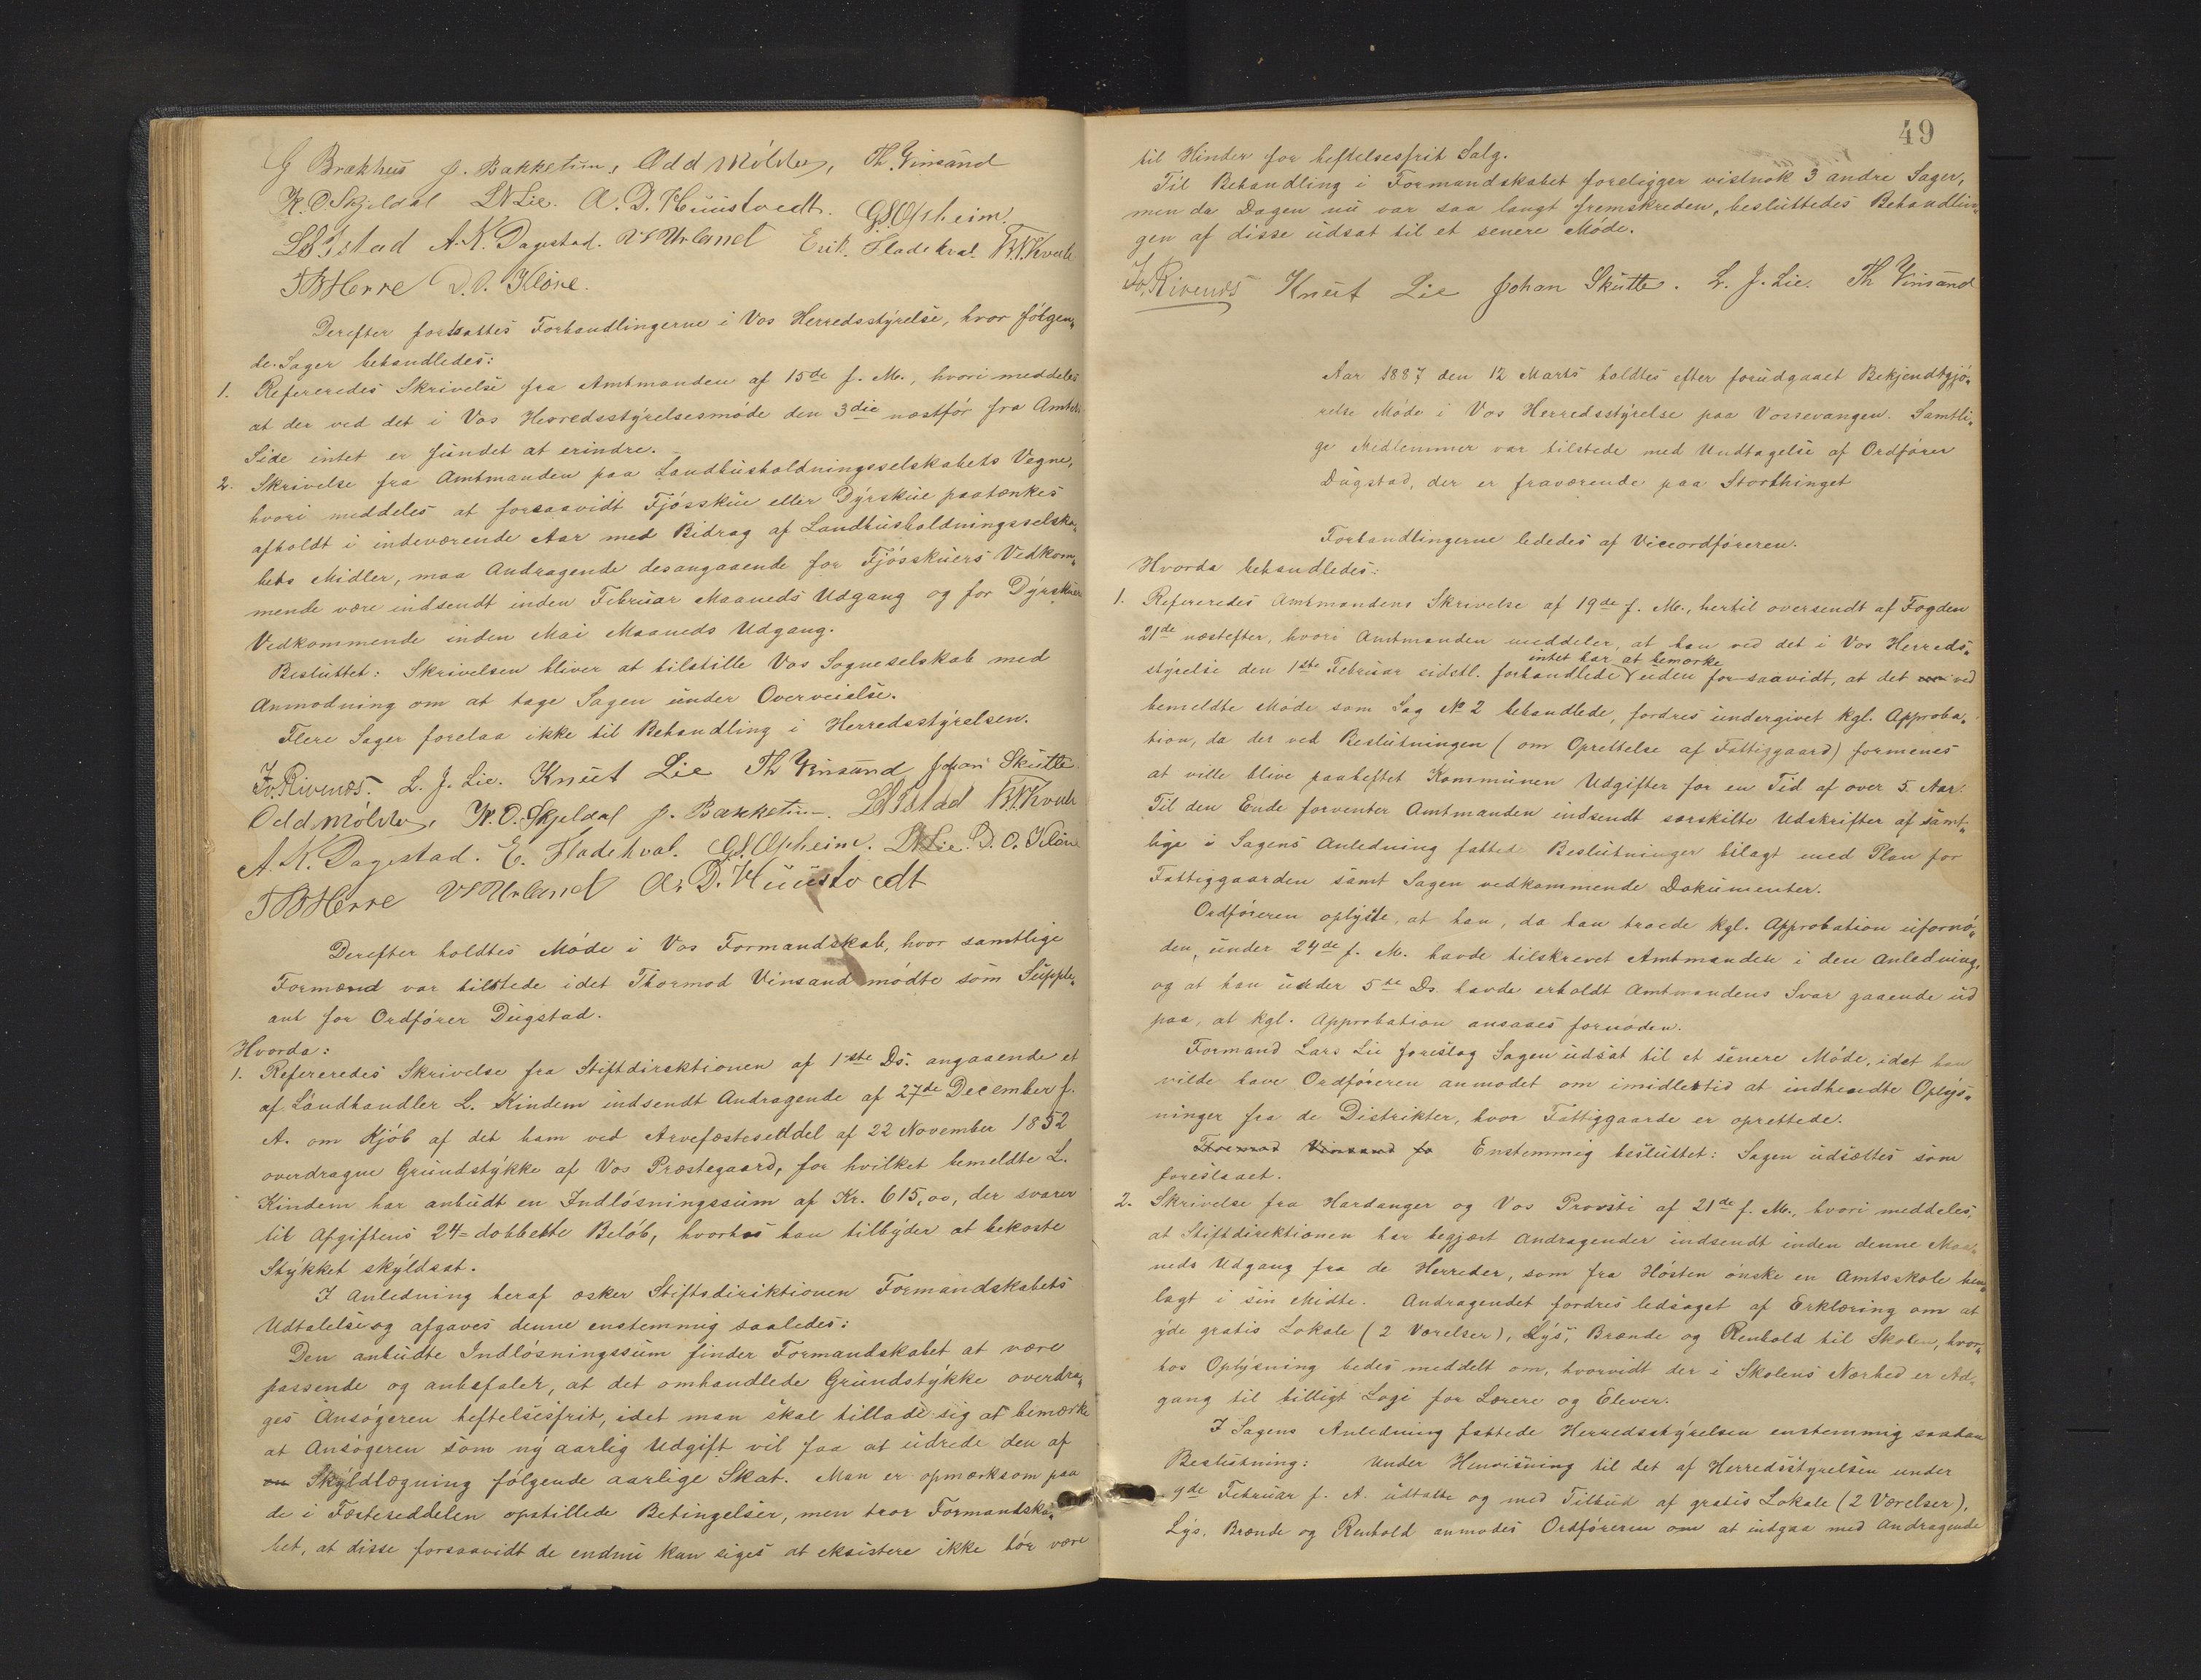 G Brækhus J. Bakketun, Odd Mölster, Th. Vinsand
K. O. Skjeldal LNLie. A. D. Huustvedt. G.S. Opheim.
L B Istad A. K. Dagestad. W Urland Erik. Fladekval B. T. Kvale
T B Herre D. O. Klöve.
Derefter fortsattes Forhandlingerne i Vos Herredsstýrelse, hvor fölgen„
de Sager behandledes:
1. Refereredes Skrivelse fra Amtmanden af 15de f. M., hvori meddeles
at der ved det i Vos Herredsstýrelsesmöde den 3die næstför fra Amtets
Side intet er fundet at erindre.
2. Skrivelse fra Amtmanden paa Landhusholdningsselskabets Vegne,
hvori meddeles at forsaavidt Fjösskue eller Dýrskue paatænkes
afholdt i indeværende Aar med Bidrag af Landhusholdningsselska„
bets Midler, maa Andragende desangaaende for Fjösskuers Vedkom„
mende være indsendt inden Februar Maaneds Udgang og for Dýrskuers
Vedkommende inden Mai Maaneds Udgang.
Besluttet: Skrivelsen bliver at tilstille Vos Sogneselskab med
Anmodning om at tage Sagen under Overveielse.
Flere Sager forelaa ikke til Behandling i Herredsstýrelsen.
Iv. Rivenæs. L. J. Lie. Knut Lie Th Vinsand Johan Skutle
Odd Mölster, K. O. Skjeldal J. Bakketun. LBIstad B. T. Kvale
A. K. Dagestad. E. Fladekval. G.S. Opheim. LNLie. D. O. Klöve
T B Herre W Urland A. D. Huustvedt
Derefter holdtes Möde i Vos Formandskab, hvor samtlige
Formænd var tilstede idet Thormod Vinsand mödte som Supple„
ant for Ordförer Dugstad.
Hvorda:
1. Refereredes Skrivelse fra Stiftdirektionen af 1ste Ds. angaaende et
af Landhandler L. Kindem indsendt Andragende af 27de December f.
A. om Kjöb af det ham ved Arvefæsteseddel af 22 November 1852
overdragne Grundstýkke af Vos Præstegaard, for hvilket bemeldte L.
Kindem har anbudt en Indlösningssum af Kr. 615,00, der svarer
til Afgiftens 24-dobbelte Belöb, hvorhos han tilbýder at bekoste
Stýkket skýldsat.
I Anledning heraf æsker Stiftsdirektionen Formandskabets
Udtalelse og afgaves denne enstemmig saaledes:
Den anbudte Indlösningssum finder Formandskabet at være
passende og anbefaler, at det omhandlede Grundstýkke overdra„
ges Ansögeren heftelsesfrit, idet man skal tillade sig at bemærke
at Ansögeren som ný aarlig Udgift vil faa at udrede den af
en Skýldlægning fölgende aarlige Skat. Man er opmærksom paa
de i Fæsteseddelen opstillede Betingelser, men tror Formandska„
bet, at disse forsaavidt de endnu kan siges at eksistere ikke bör være
49
til Hinder for heftelsesfrit Salg.
Til Behandling i Formandskabet foreligger vistnok 3 andre Sager,
men da Dagen nu var saa langt fremskreden, besluttedes Behandlin„
gen af disse udsat til et senere Möde.
Iv. Rivenæs Knut Lie Johan Skutle. L. J. Lie. Th Vinsand
Aar 1887 den 12 Marts holdtes efter forudgaaet Bekjendtgjö„
relse Möde i Vos Herredsstýrelse paa Vossevangen. Samtli„
ge Medlemmer var tilstede med Undtagelse af Ordförer
Dugstad, der er fraværende paa Storthinget
Forhandlingerne lededes af Viceordföreren.
Hvorda behandledes:
1. Refereredes Amtmandens Skrivelse af 19de f. M., hertil oversendt af Fogden
21de næstefter, hvori Amtmanden meddeler, at han ved det i Vos Herreds„
intet har at bemærke
stýrelse den 1ste Februar sidstl. forhandlede uden forsaavidt, at det ved
bemeldte Möde som Sag No 2 behandlede, fordres undergivet kgl. Approba„
tion, da der ved Beslutningen (om Oprettelse af Fattiggaard) formenes
at ville blive paaheftet Kommunen Udgifter for en Tid af over 5 Aar.
Til den Ende forventer Amtmanden indsendt særskilte Udskrifter af samt„
lige i Sagens Anledning fattede Beslutninger bilagt med Plan for
Fattiggaarden samt Sagen vedkommende Dokumenter.
Ordföreren oplýste, at han, da han troede kgl. Approbation ufornö„
den, under 24de f. M. havde tilskrevet Amtmanden i den Anledning,
og at han under 5te Ds. havde erholdt Amtmandens Svar gaaende ud
paa, at kgl. Approbation ansaaes fornöden.
Formand Lars Lie foreslog Sagen udsat til et senere Möde, idet han
vilde have Ordföreren anmodet om imidlertid at indhente Oplýs„
ninger fra de Distrikter, hvor Fattiggaarde er oprettede.
Thormod Vinsand fo Enstemmig besluttet: Sagen udsættes som
foreslaaet.
2. Skrivelse fra Hardanger og Vos Provsti af 21de f. M., hvori meddeles,
at Stiftdirektionen har begjært Andragender indsendt inden denne Maa„
neds Udgang fra de Herreder, som fra Hösten önske en Amtsskole hen„
lagt i sin Midte. Andragendet fordres ledsaget af Erklæring om at
ýde gratis Lokale (2 Værelser), Lýs, Brænde og Renhold til Skolen, hvor„
hos Oplýsning bedes meddelt om, hvorvidt der i Skolens Nærhed er Ad„
gang til billigt Logi for Lærere og Elever.
I Sagens Anledning fattede Herredsstýrelsen enstemmig saadan
Beslutning: Under Henvisning til det af Herredsstyrelsen under
9de Februar f. A. udtalte og med Tilbud af gratis Lokale (2 Værelser),
Lýs, Brænde og Renhold anmodes Ordföreren om at indgaa med Andragende